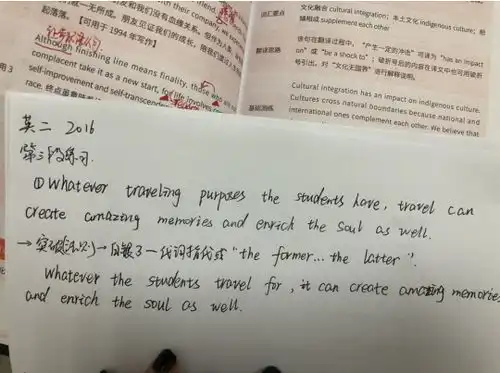 起落落。【可用于 1994 年写作】
Although finishing line means finality, those who are
complacent take it as a new start, for life involves
self-improvement and self-transcendence
race.
文化融合 cultural integration; 本土文化 indigenous culture; 相
辅相成 supplement each other
翻译思路
该句在翻译过程中, "产生一定的冲击" 可译为 "has an impact
on" 或 "be a shock to"; 破折号后的内容在译文中也可用破折
号引出, 对 "文化无国界" 进行解释说明。
Cultural integration has an impact on indigenous culture.
Cultures cross natural boundaries because national and
international ones complement each other. We believe that
英二 2016
第三段练习.
① Whatever traveling purposes the students have, travel can
create amazing memories and enrich the soul as well.
→ 代词指代 "the former... the latter".
Whatever the students travel for, it can create amazing memories
and enrich the soul as well.